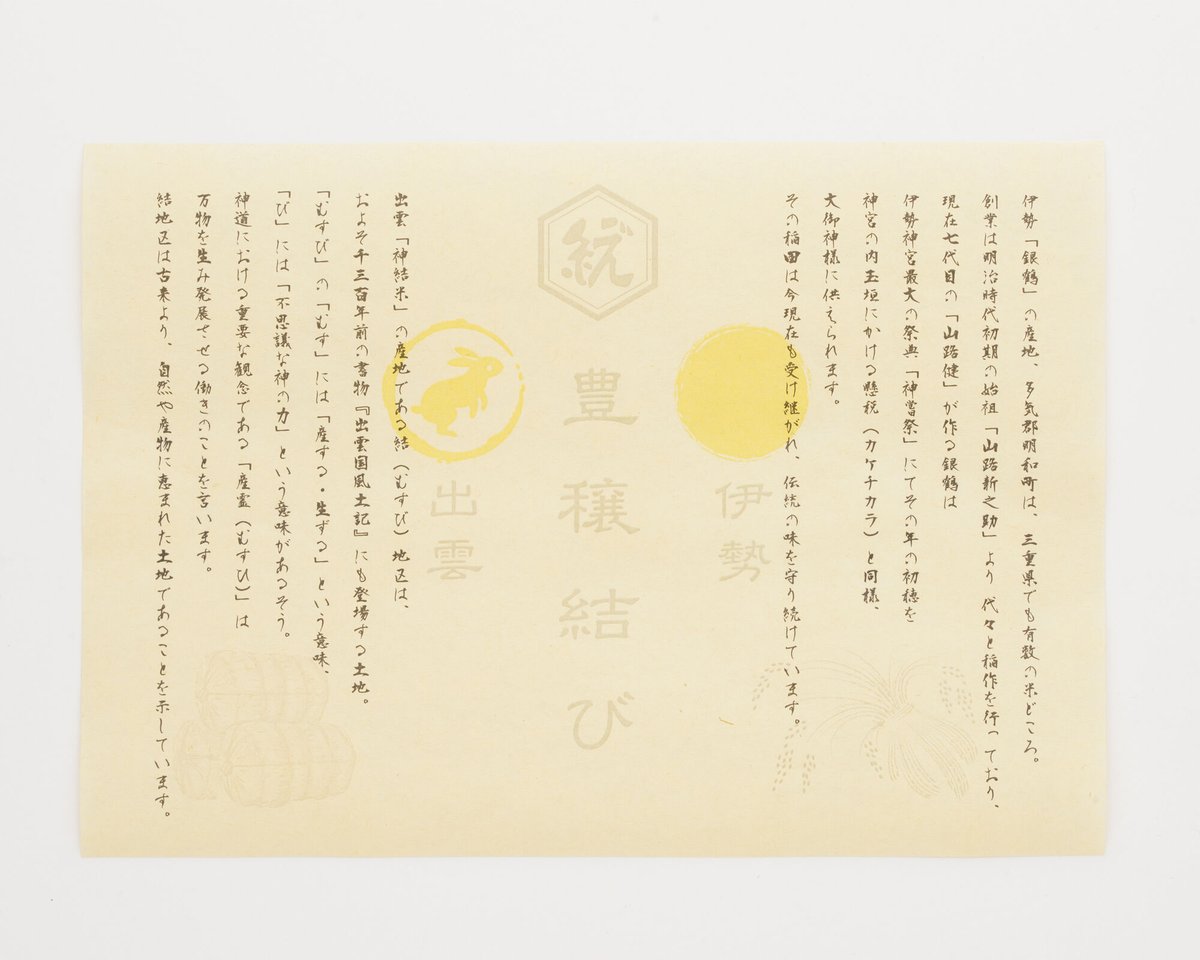 伊勢「銀鶴」の産地、多気郡明和町は、三重県でも有数の米どころ。
創業は明治時代初期の始祖「山路新之助」より代々と稲作を行っており、
現在七代目の「山路健」が作る銀鶴は
伊勢神宮最大の祭典「神嘗祭」にてその年の初穂を
神宮の内玉垣にかける懸税（カケチカラ）と同様、
大御神様に供えられます。
その稲田は今現在も受け継がれ、伝統の味を守り続けています。
伊勢
統
豊穣結び
出雲
出雲「神結米」の産地である結（むすび）地区は、
およそ千三百年前の書物『出雲国風土記』にも登場する土地。
「むすび」の「むす」には「産する・生ずる」という意味、
「び」には「不思議な神の力」という意味があるそう。
神道における重要な観念である「産霊（むすひ）」は
万物を生み発展させる働きのことを言います。
結地区は古来より、自然や産物に恵まれた土地であることを示しています。